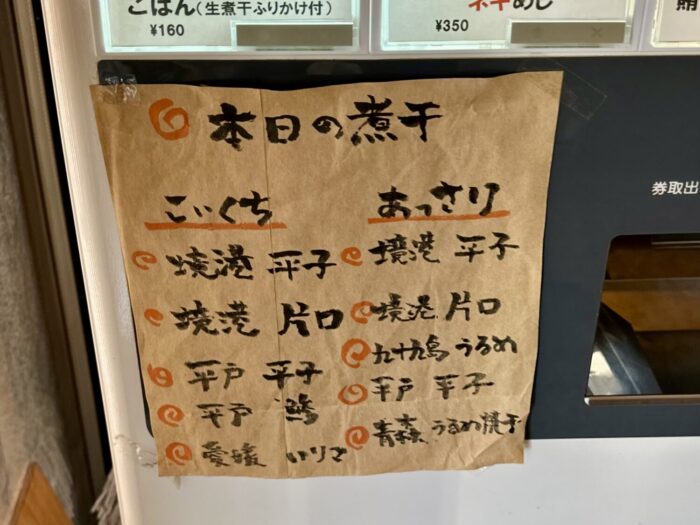 ごはん（生煮干ふりかけ付）
¥160
ネギめし
¥350
券取出
本日の煮干
こいくち
境港 平子
境港 片口
平戸 平子
平戸 鯵
愛媛 いりこ
あっさり
境港 平子
境港 片口
九十九島 うるめ
平戸 平子
青森 うるめ焼干